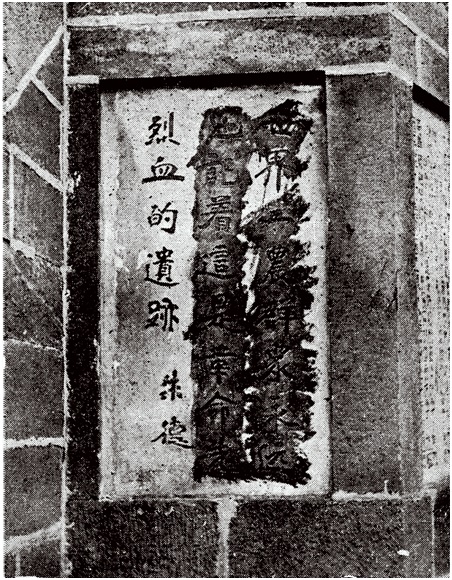 世界工農群衆永遠
地記着這是革命先
烈血的遺跡 朱德